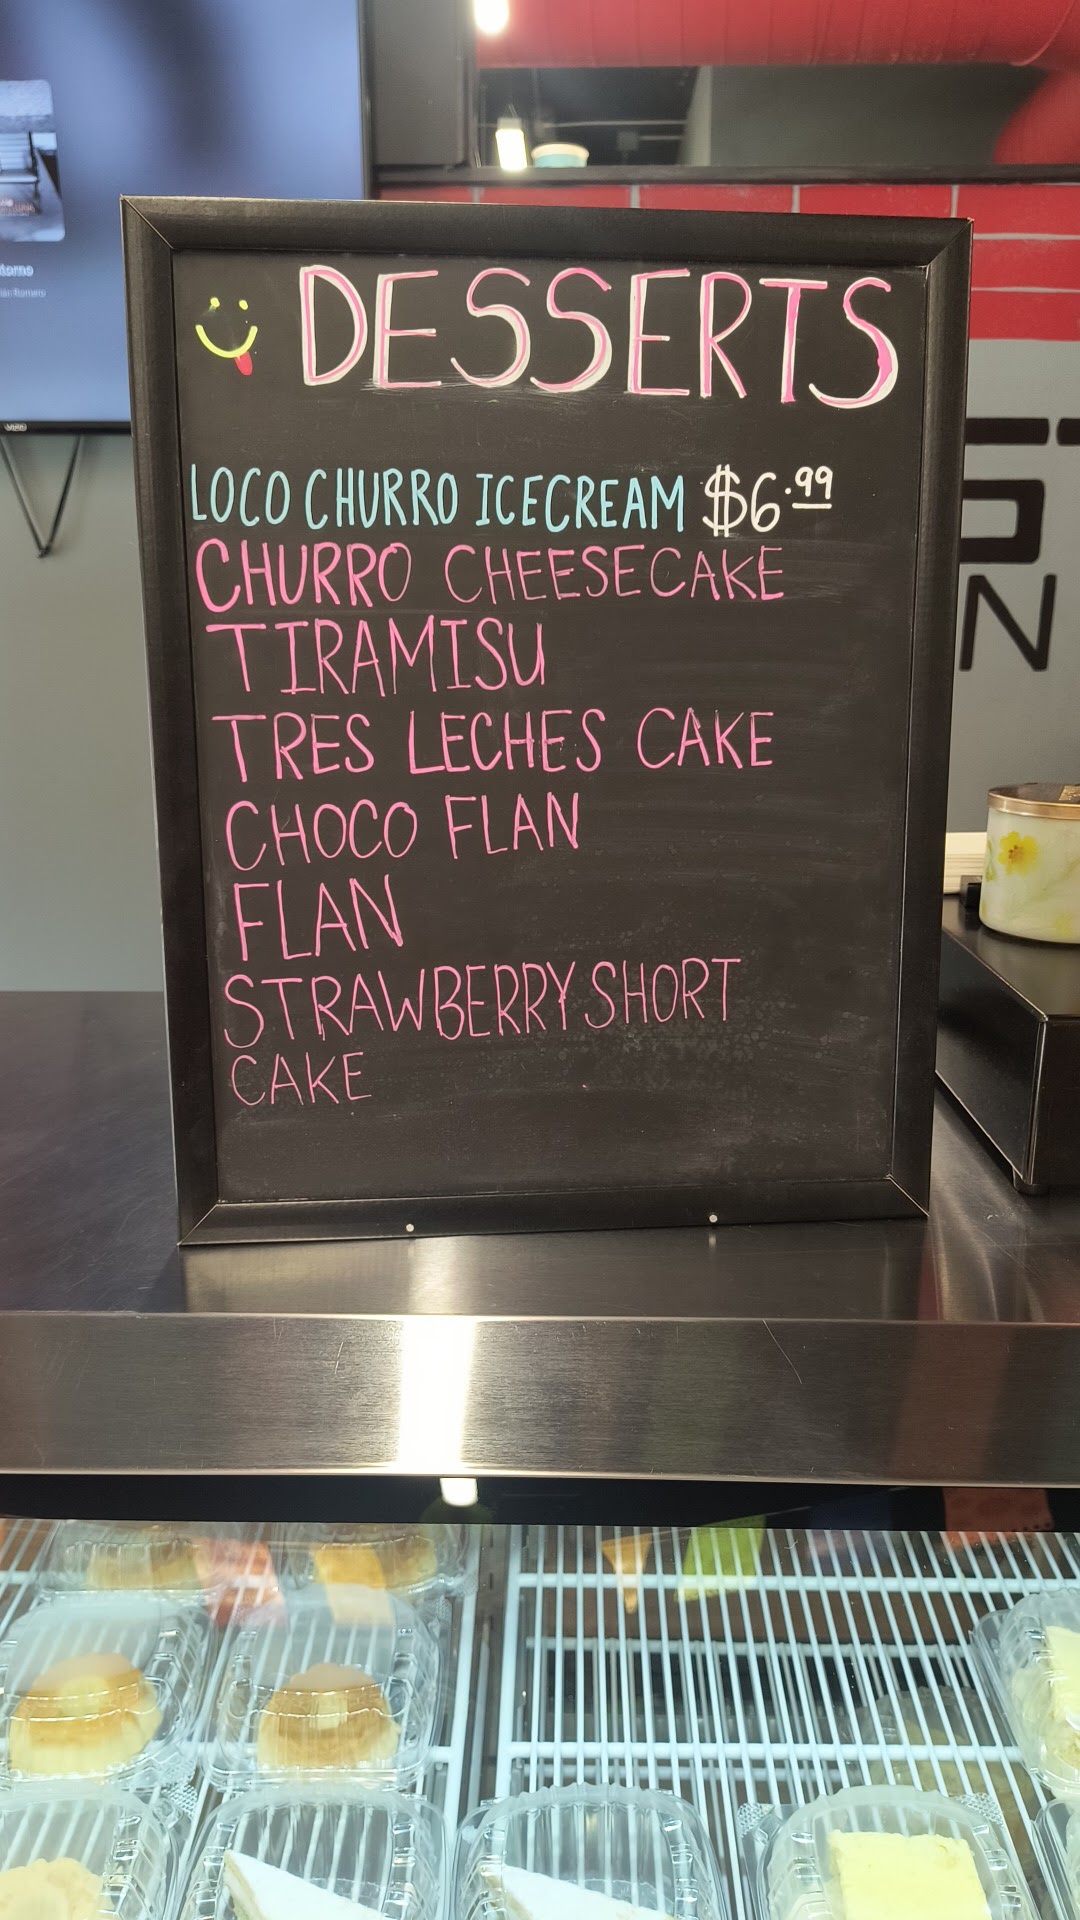 DESSERTS
LOCO CHURRO ICECREAM $6.99
CHURRO CHEESECAKE
TIRAMISU
TRES LECHES CAKE
CHOCO FLAN
FLAN
STRAWBERRY SHORT
CAKE
VIZIO